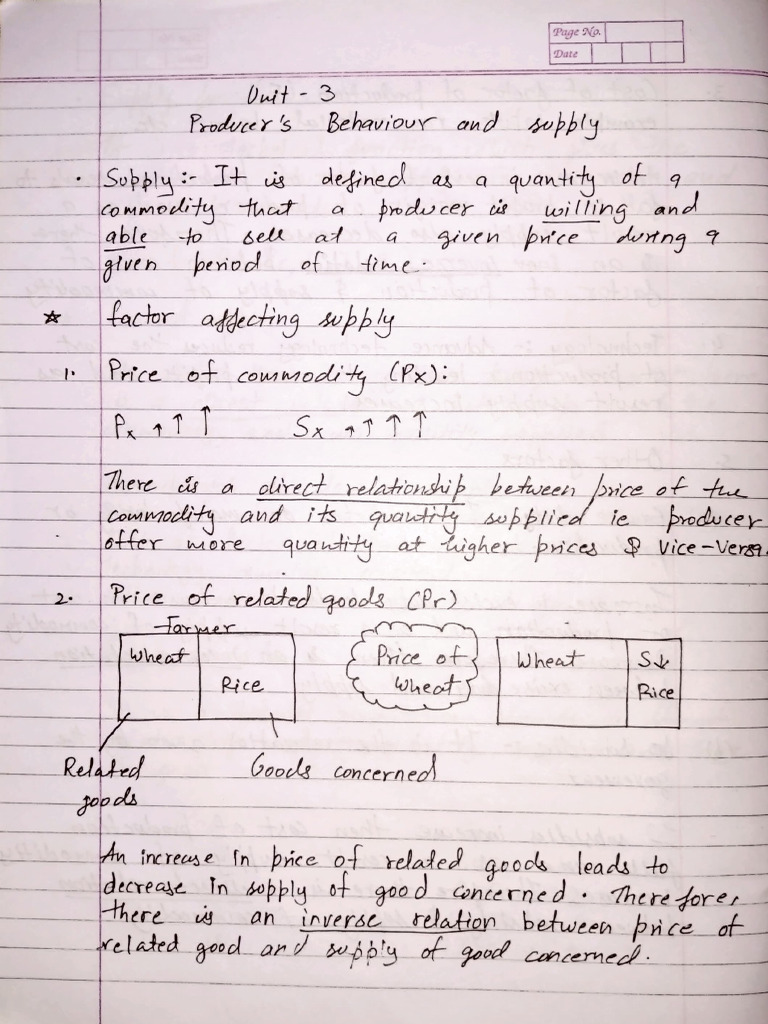 Page No.
Date
Unit - 3
Producer's Behaviour and supply
• Supply:- It is defined as a quantity of a
commodity that a producer is willing and
able to sell at a given price during a
given period of time.
☆ factor affecting supply
1. Price of commodity (Px):
Px ↑↑↑ Sx ↑↑↑↑
There is a direct relationship between price of the
commodity and its quantity supplied ie producer
offer more quantity at higher prices & Vice-Versa.
2. Price of related goods (Pr)
Farmer
Wheat
Rice
Price of
Wheat
Wheat
S↓
Rice
Related
goods
Goods concerned
An increase in price of related goods leads to
decrease in supply of good concerned. Therefore,
there is an inverse relation between price of
related good and supply of good concerned.